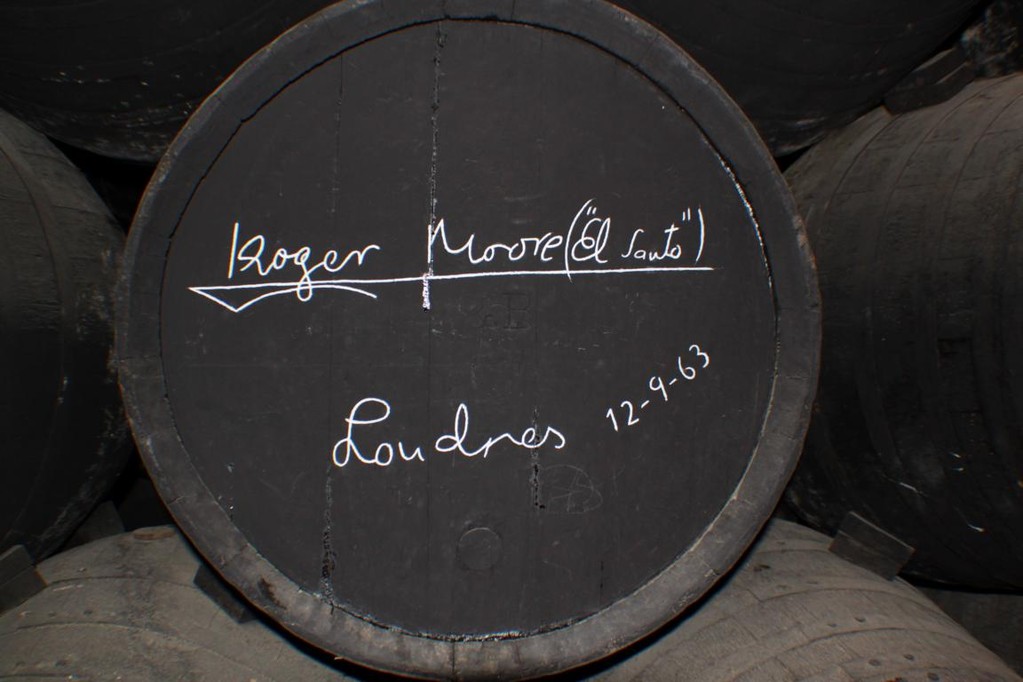 Roger Moore ("El Santo")
Londres 12-9-63